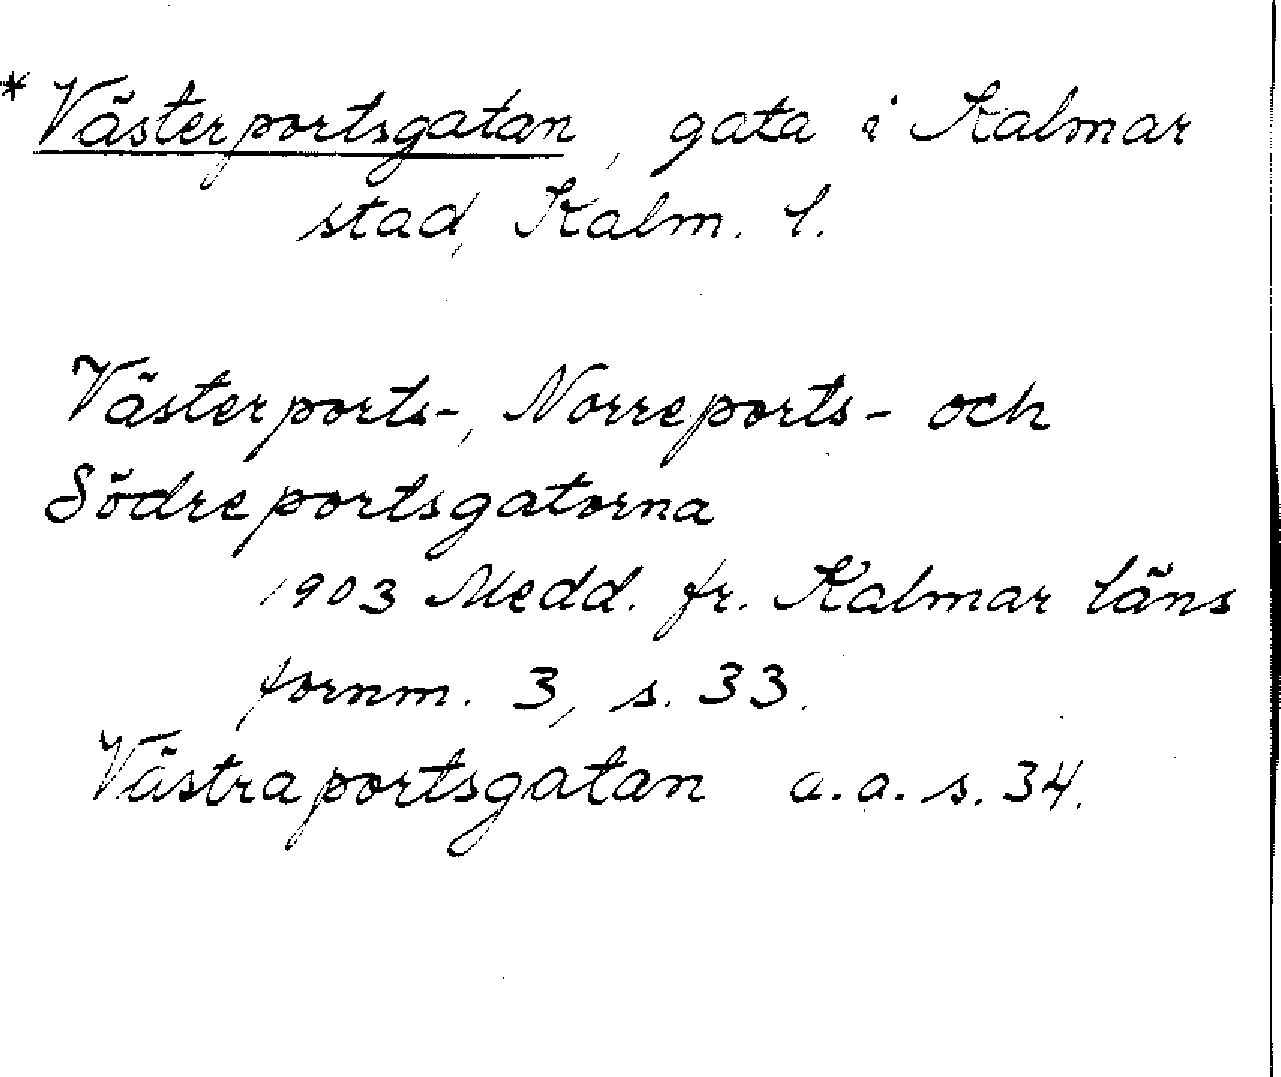 * Västerportsgatan, gata i Kalmar
stad, Kalm. l.
Västerports-, Norreports- och
Södreportsgatorna
1903 Medd. fr. Kalmar läns
fornm. 3, s. 33.
Västraportsgatan a.a. s. 34.